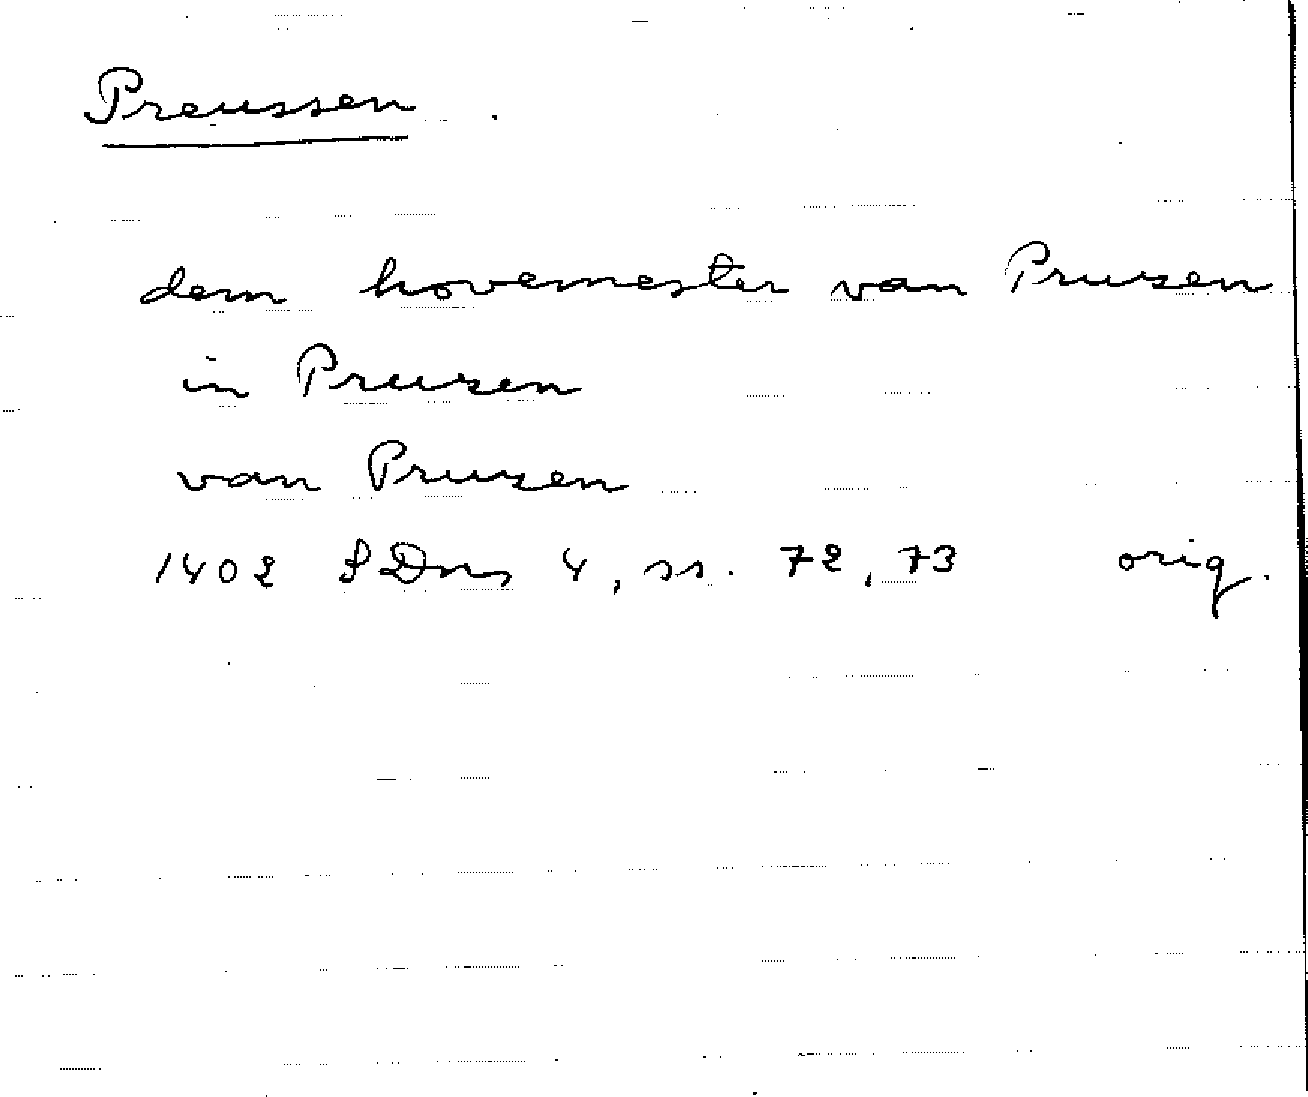 Preussen
dem hovemester van Pruzen
in Pruzen
van Pruzen
1402 SDns 4, ss. 72, 73 orig.